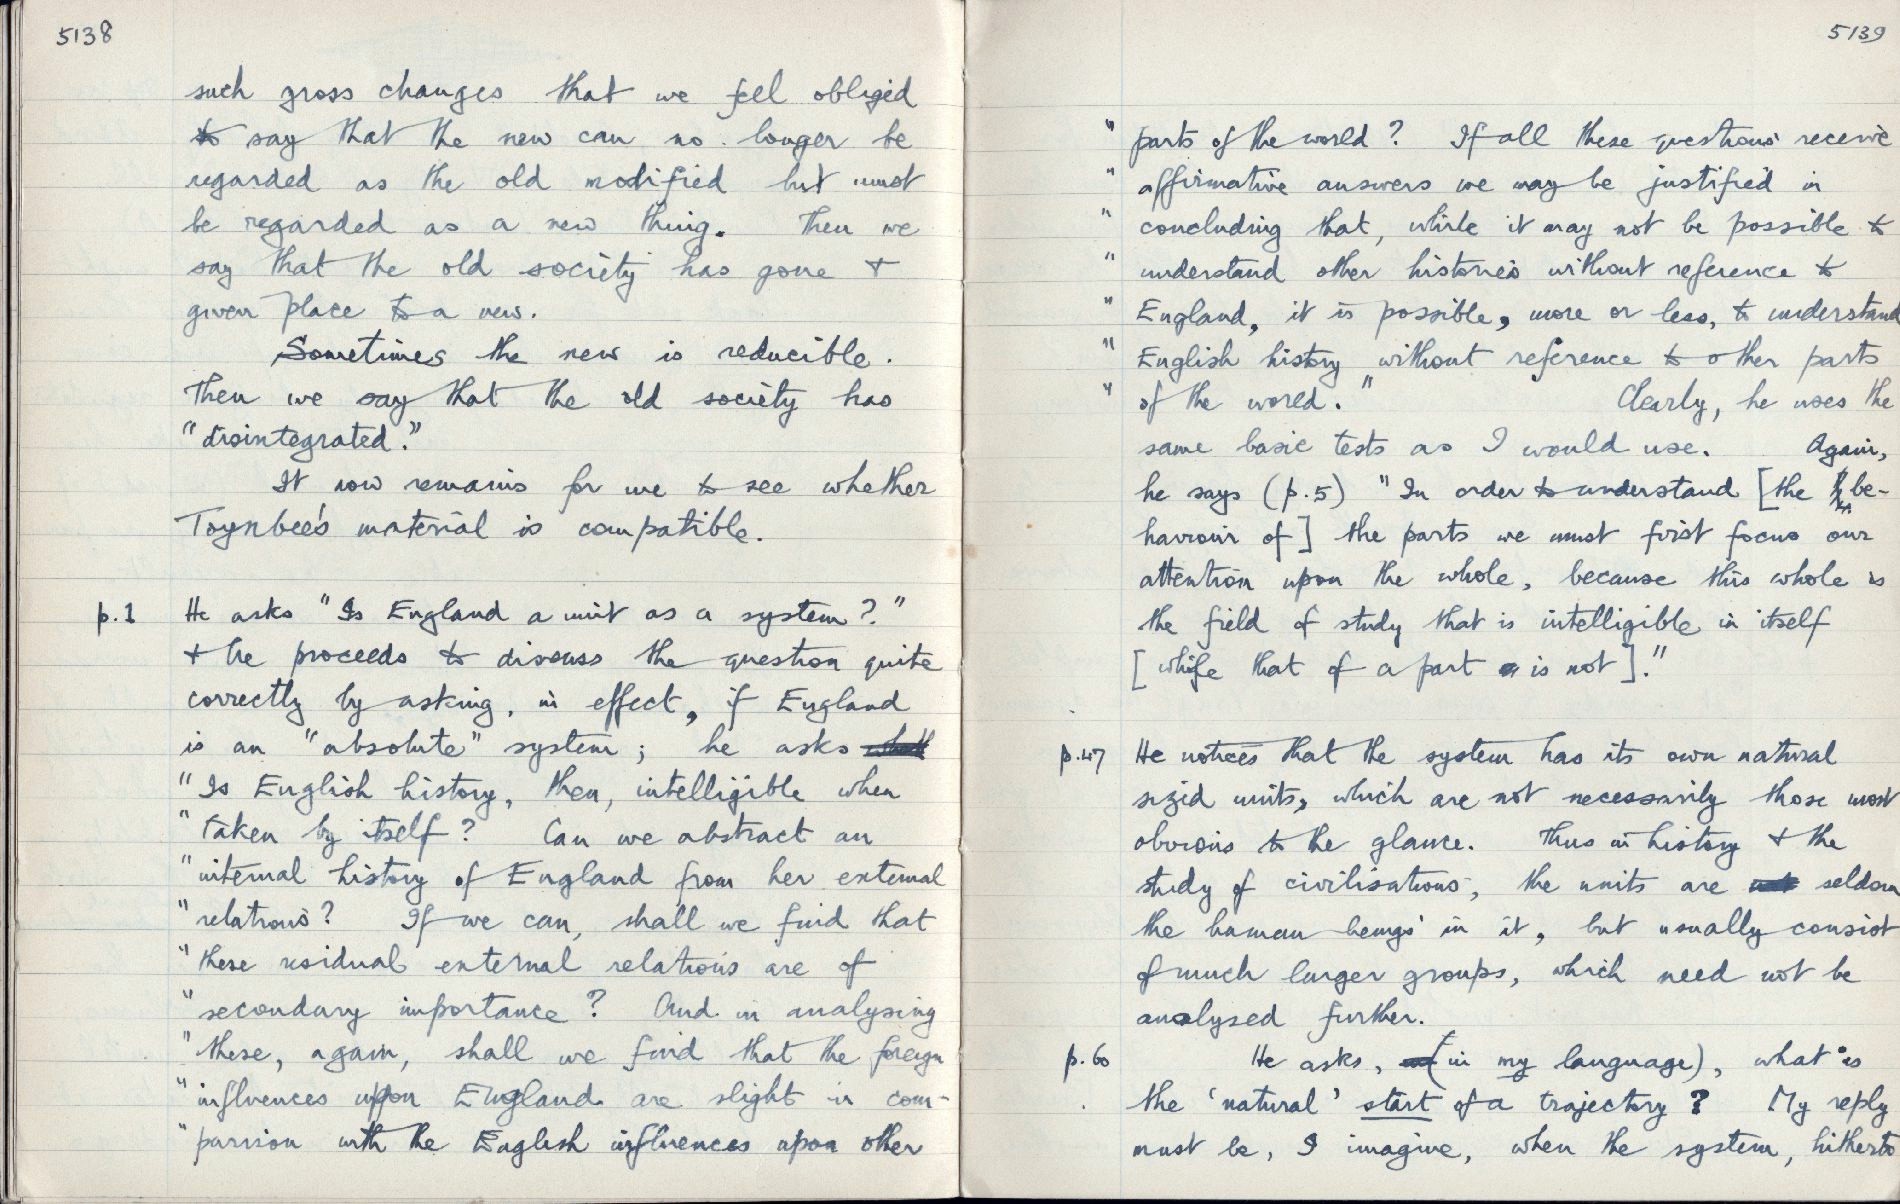 5138
such gross changes that we feel obliged
to say that the new can no longer be
regarded as the old modified but must
be regarded as a new thing. Then we
say that the old society has gone +
given place to a new.
Sometimes the new is reducible.
Then we say that the old society has
"disintegrated."
It now remains for me to see whether
Toynbee's material is compatible.
p.1 He asks "Is England a unit as a system?"
+ he proceeds to discuss the question quite
correctly by asking, in effect, if England
is an "absolute" system; he asks
"Is English history, then, intelligible when
"taken by itself? Can we abstract an
"internal history of England from her external
"relations? If we can, shall we find that
"these residual external relations are of
"secondary importance? And in analysing
"these, again, shall we find that the foreign
"influences upon England are slight in com-
"parison with the English influences upon other
5139
" parts of the world? If all these questions receive
" affirmative answers we may be justified in
" concluding that, while it may not be possible to
" understand other histories without reference to
" England, it is possible, more or less, to understand
" English history without reference to other parts
" of the world." Clearly, he uses the
same basic tests as I would use. Again,
he says (p.5) "In order to understand [the be-
haviour of] the parts we must first focus our
attention upon the whole, because this whole is
the field of study that is intelligible in itself
[while that of a part is not]."
p.47 He notices that the system has its own natural
sized units, which are not necessarily those most
obvious to the glance. Thus in history + the
study of civilisations, the units are seldom
the human beings in it, but usually consist
of much larger groups, which need not be
analysed further.
p.60 He asks, (in my language), what is
the 'natural' start of a trajectory? My reply
must be, I imagine, when the system, hitherto